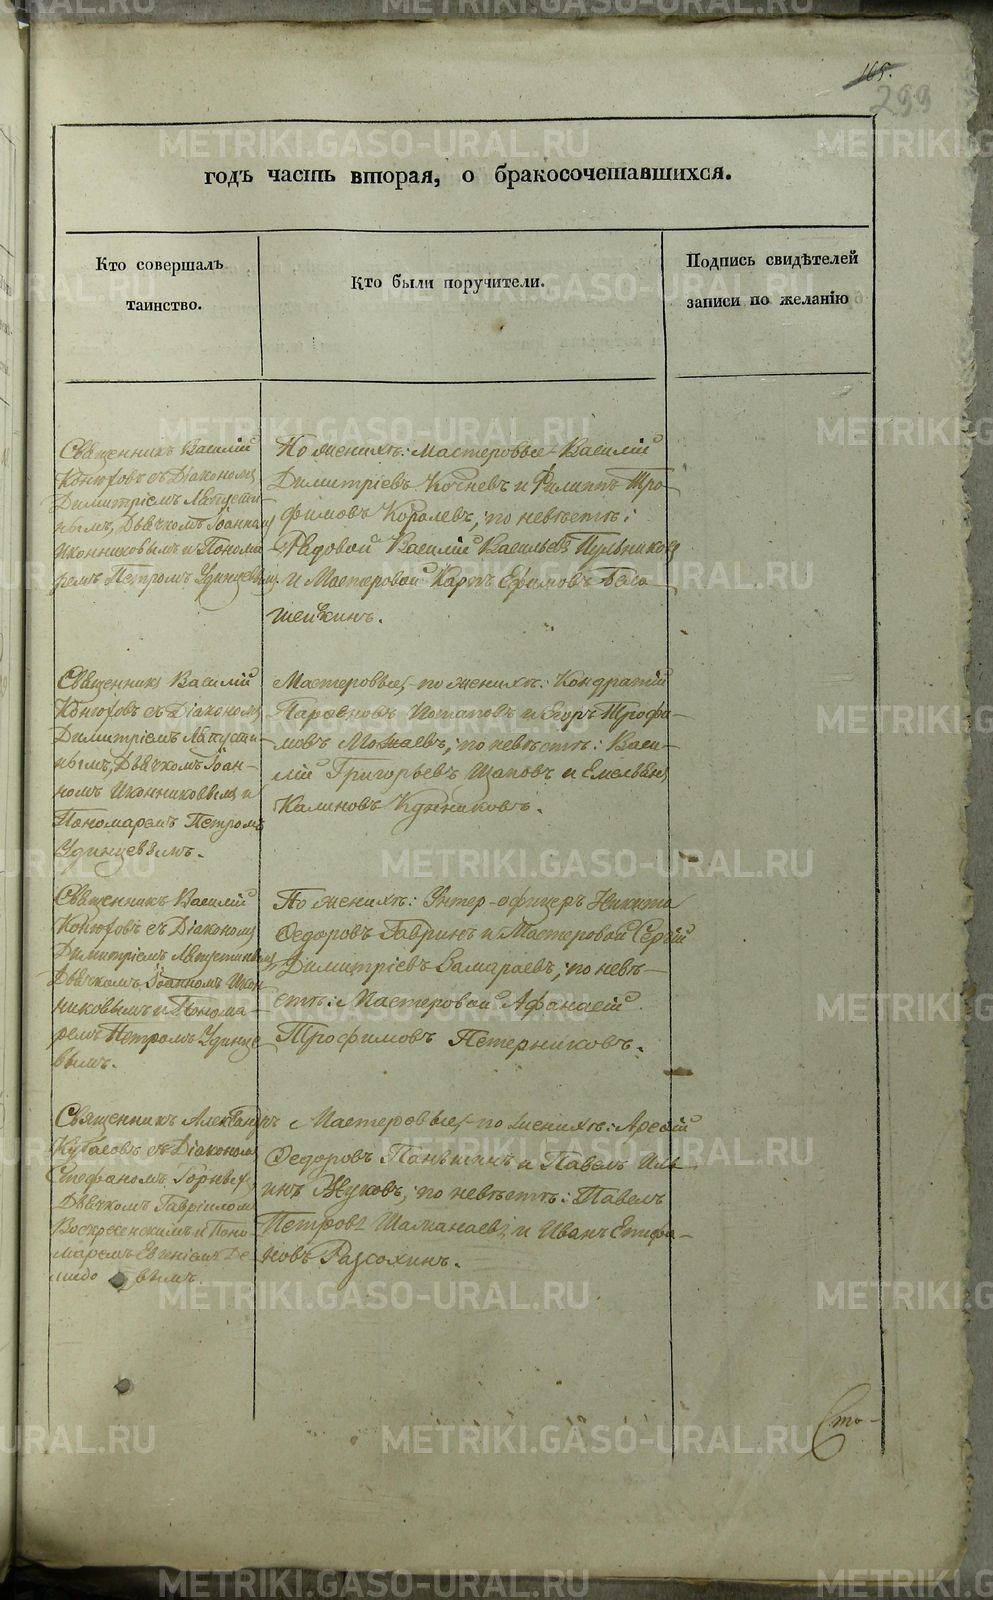 165.
299
годъ часть вторая, о бракосочетавшихся.
Кто совершалъ
таинство.
Кто были поручители.
Подпись свидѣтелей
записи по желанію
Священникъ Василій
Конюховъ съ Діакономъ
Димитріемъ Лапусти-
нымъ, Дьячкомъ Іоанномъ
Иконниковымъ и Понома
ремъ Петромъ Удинцевымъ
По женихѣ: Мастеровые Василій
Димитріевъ Кочневъ и Филиппъ Тро-
фимовъ Королевъ; по невѣстѣ:
Рядовой Василій Васильевъ Пульников
и Мастеровой Карпъ Ефимовъ Бело
шейкинъ.
Священникъ Василій
Конюховъ съ Діакономъ
Димитріемъ Лапусти-
нымъ, Дьячкомъ Іоан-
номъ Иконниковымъ и
Пономаремъ Петромъ
Удинцевымъ.
Мастеровые, по женихѣ: Кондратій
Потаповъ и Егоръ Трофи-
мовъ Можаевъ; по невѣстѣ: Васи-
лій Григорьевъ Щаповъ и Емельянъ
Калиновъ
Священникъ Василій
Конюховъ съ Діакономъ
Димитріемъ Лапустинымъ
Дьячкомъ Іоанномъ Икон
никовымъ и Понома-
ремъ Петромъ Удинце
вымъ.
По женихѣ: Унтер-офицеръ Никита
Федоровъ Гавринъ и Мастеровой Сергій
Димитріевъ Самараевъ; по невѣ-
стѣ: Мастеровой Афанасій
Трофимовъ Петерниковъ.
Священникъ Александръ
съ Діакономъ
Стефаномъ Горныхъ
Дьячкомъ Гавріиломъ
Воскресенскимъ и Поно-
маремъ Евгеніемъ Де-
мидо вымъ.
Мастеровые, по женихѣ: Арсеній
Федоровъ Панькинъ и Павелъ Иль-
инъ Жуковъ; по невѣстѣ: Павелъ
Петровъ Шаманаевъ и Иванъ Епифа-
новъ Разсохинъ.
Сто-
METRIKI.GASO-URAL.RU